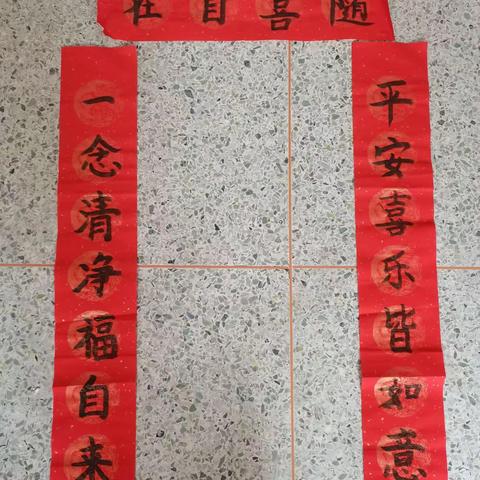 随喜自在
平安喜乐皆如意
一念清净福自来